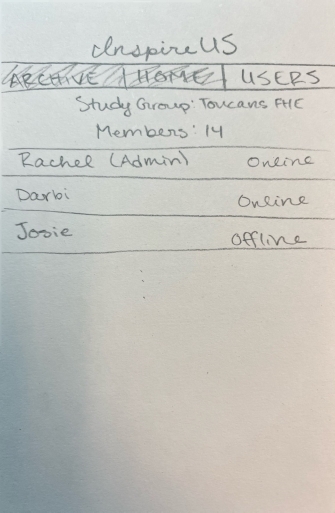 InspireUS
ARCHIVE | HOME | USERS
Study Group: Toucans FHE
Members: 14
Rachel (Admin) Online
Darbi Online
Josie Offline